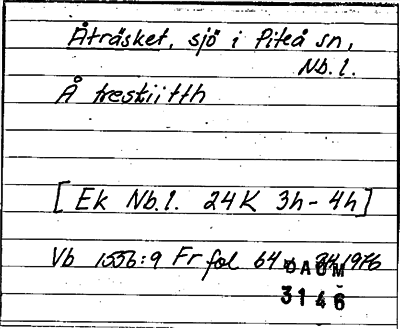 Åträsket, sjö i Piteå sn,
Nb.l.
Å treskiitth
[Ek Nb.l. 24K 3h-4h]
Vb 1556:9 Fr fol 64 1976
DAUM
3146